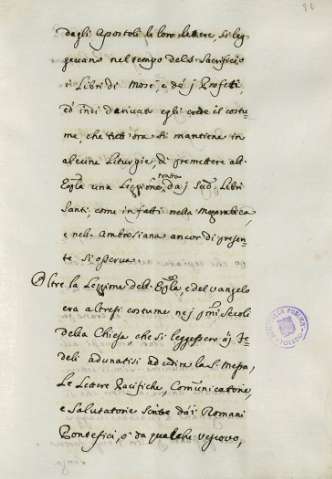 dagli Apostoli le loro lettere, si leg,
gevano nel tempo del Sacrificio
i Libri di Mosè, e dej Profeti,
ed indi derivato egli crede il costu,
me, che tutt'ora si mantiene in
alcune Liturgie, di premettere all'
Epla una Lezzione tratta daj Sud.i Libri
Santi, come in fatti nella Mozarabica,
e nell'Ambrosiana ancor di presen,
te si osserva.
Oltre la Lezzione dell'Epla, e del vangelo
era altresì costume nej pmi Secoli
della Chiesa che si leggessero aj Fe,
deli adunatisi ad udire la S. Messa,
Le Lettere Pacifiche, Comunicatorie,
e Salutatorie scritte daj Romani
Pontefici, o da qualche vescovo,